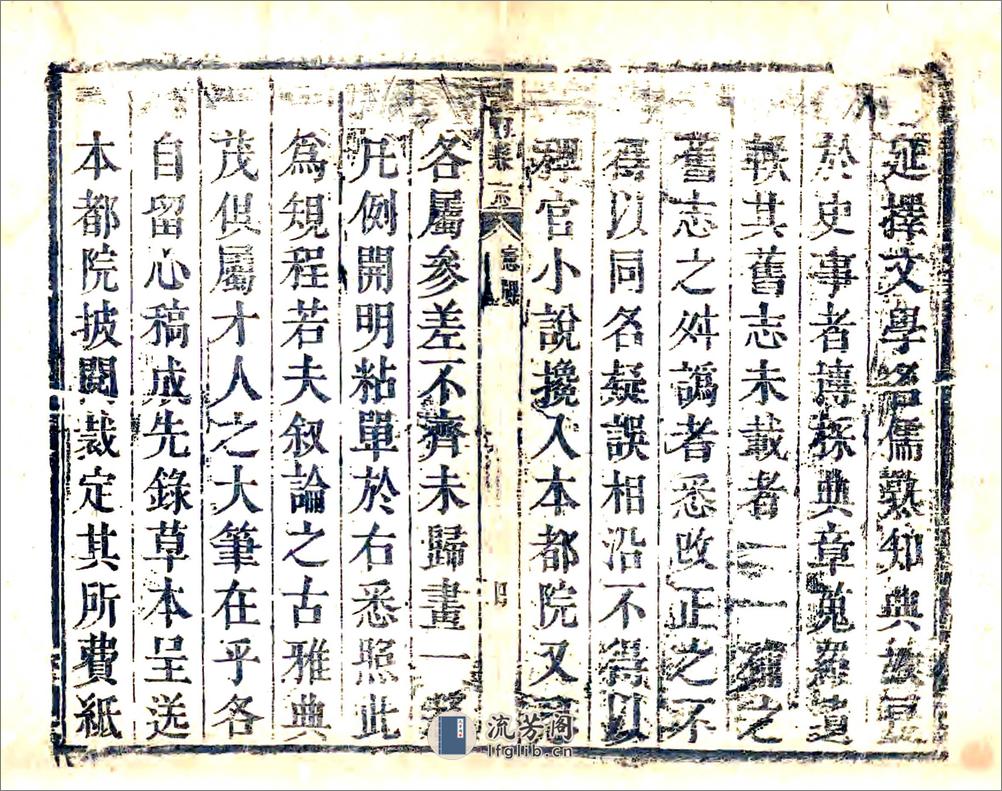 延擇文學名儒熟知典故
於史事者博採典章蒐羅遺
軼其舊志未載者一一補之
舊志之舛譌者悉改正之不
得以同名疑誤相沿不得以
稗官小說攙入本都院又恐
憲牌
四
各屬參差不齊未歸畫一
凡例開明粘單於右悉照此
爲規程若夫叙論之古雅典
茂俱屬才人之大筆在乎各
自留心稿成先錄草本呈送
本都院披閱裁定其所費紙
流芳阁
lfglib.cn